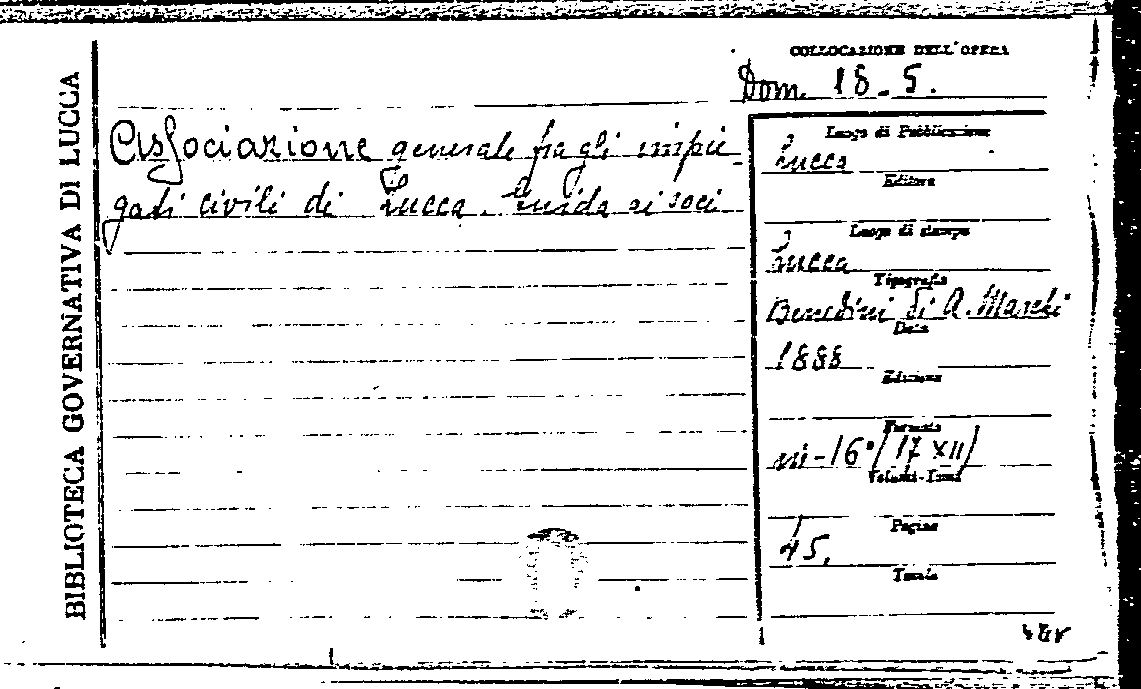 BIBLIOTECA GOVERNATIVA DI LUCCA
COLLOCAZIONE DELL'OPERA
Dom. 18-5.
Associazione generale fra gli impie
gati civili di Lucca. Guida ai soci
Luogo di Pubblicazione
Lucca
Editore
Luogo di stampa
Lucca
Tipografia
Benedini di A. Marchi
Data
1888
Edizione
Formato
in-16° (17 x 11)
Volumi-Tomi
Pagine
45.
Tavole